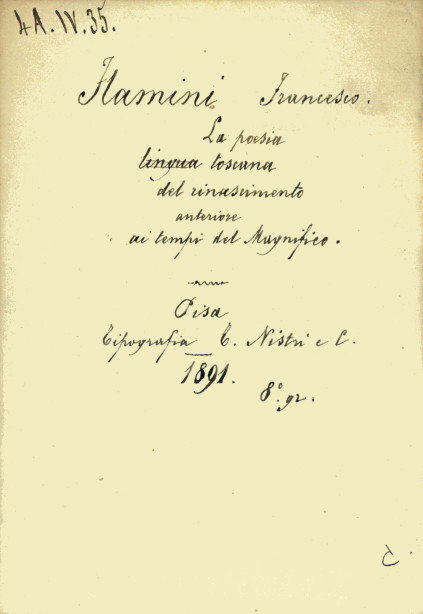 4A.IV.35.
Flamini Francesco.
La poesia
lingua toscana
del rinascimento
anteriore
ai tempi del Magnifico.
Pisa
Tipografia T. Nistri e C.
1891.
8.° gr.
C.